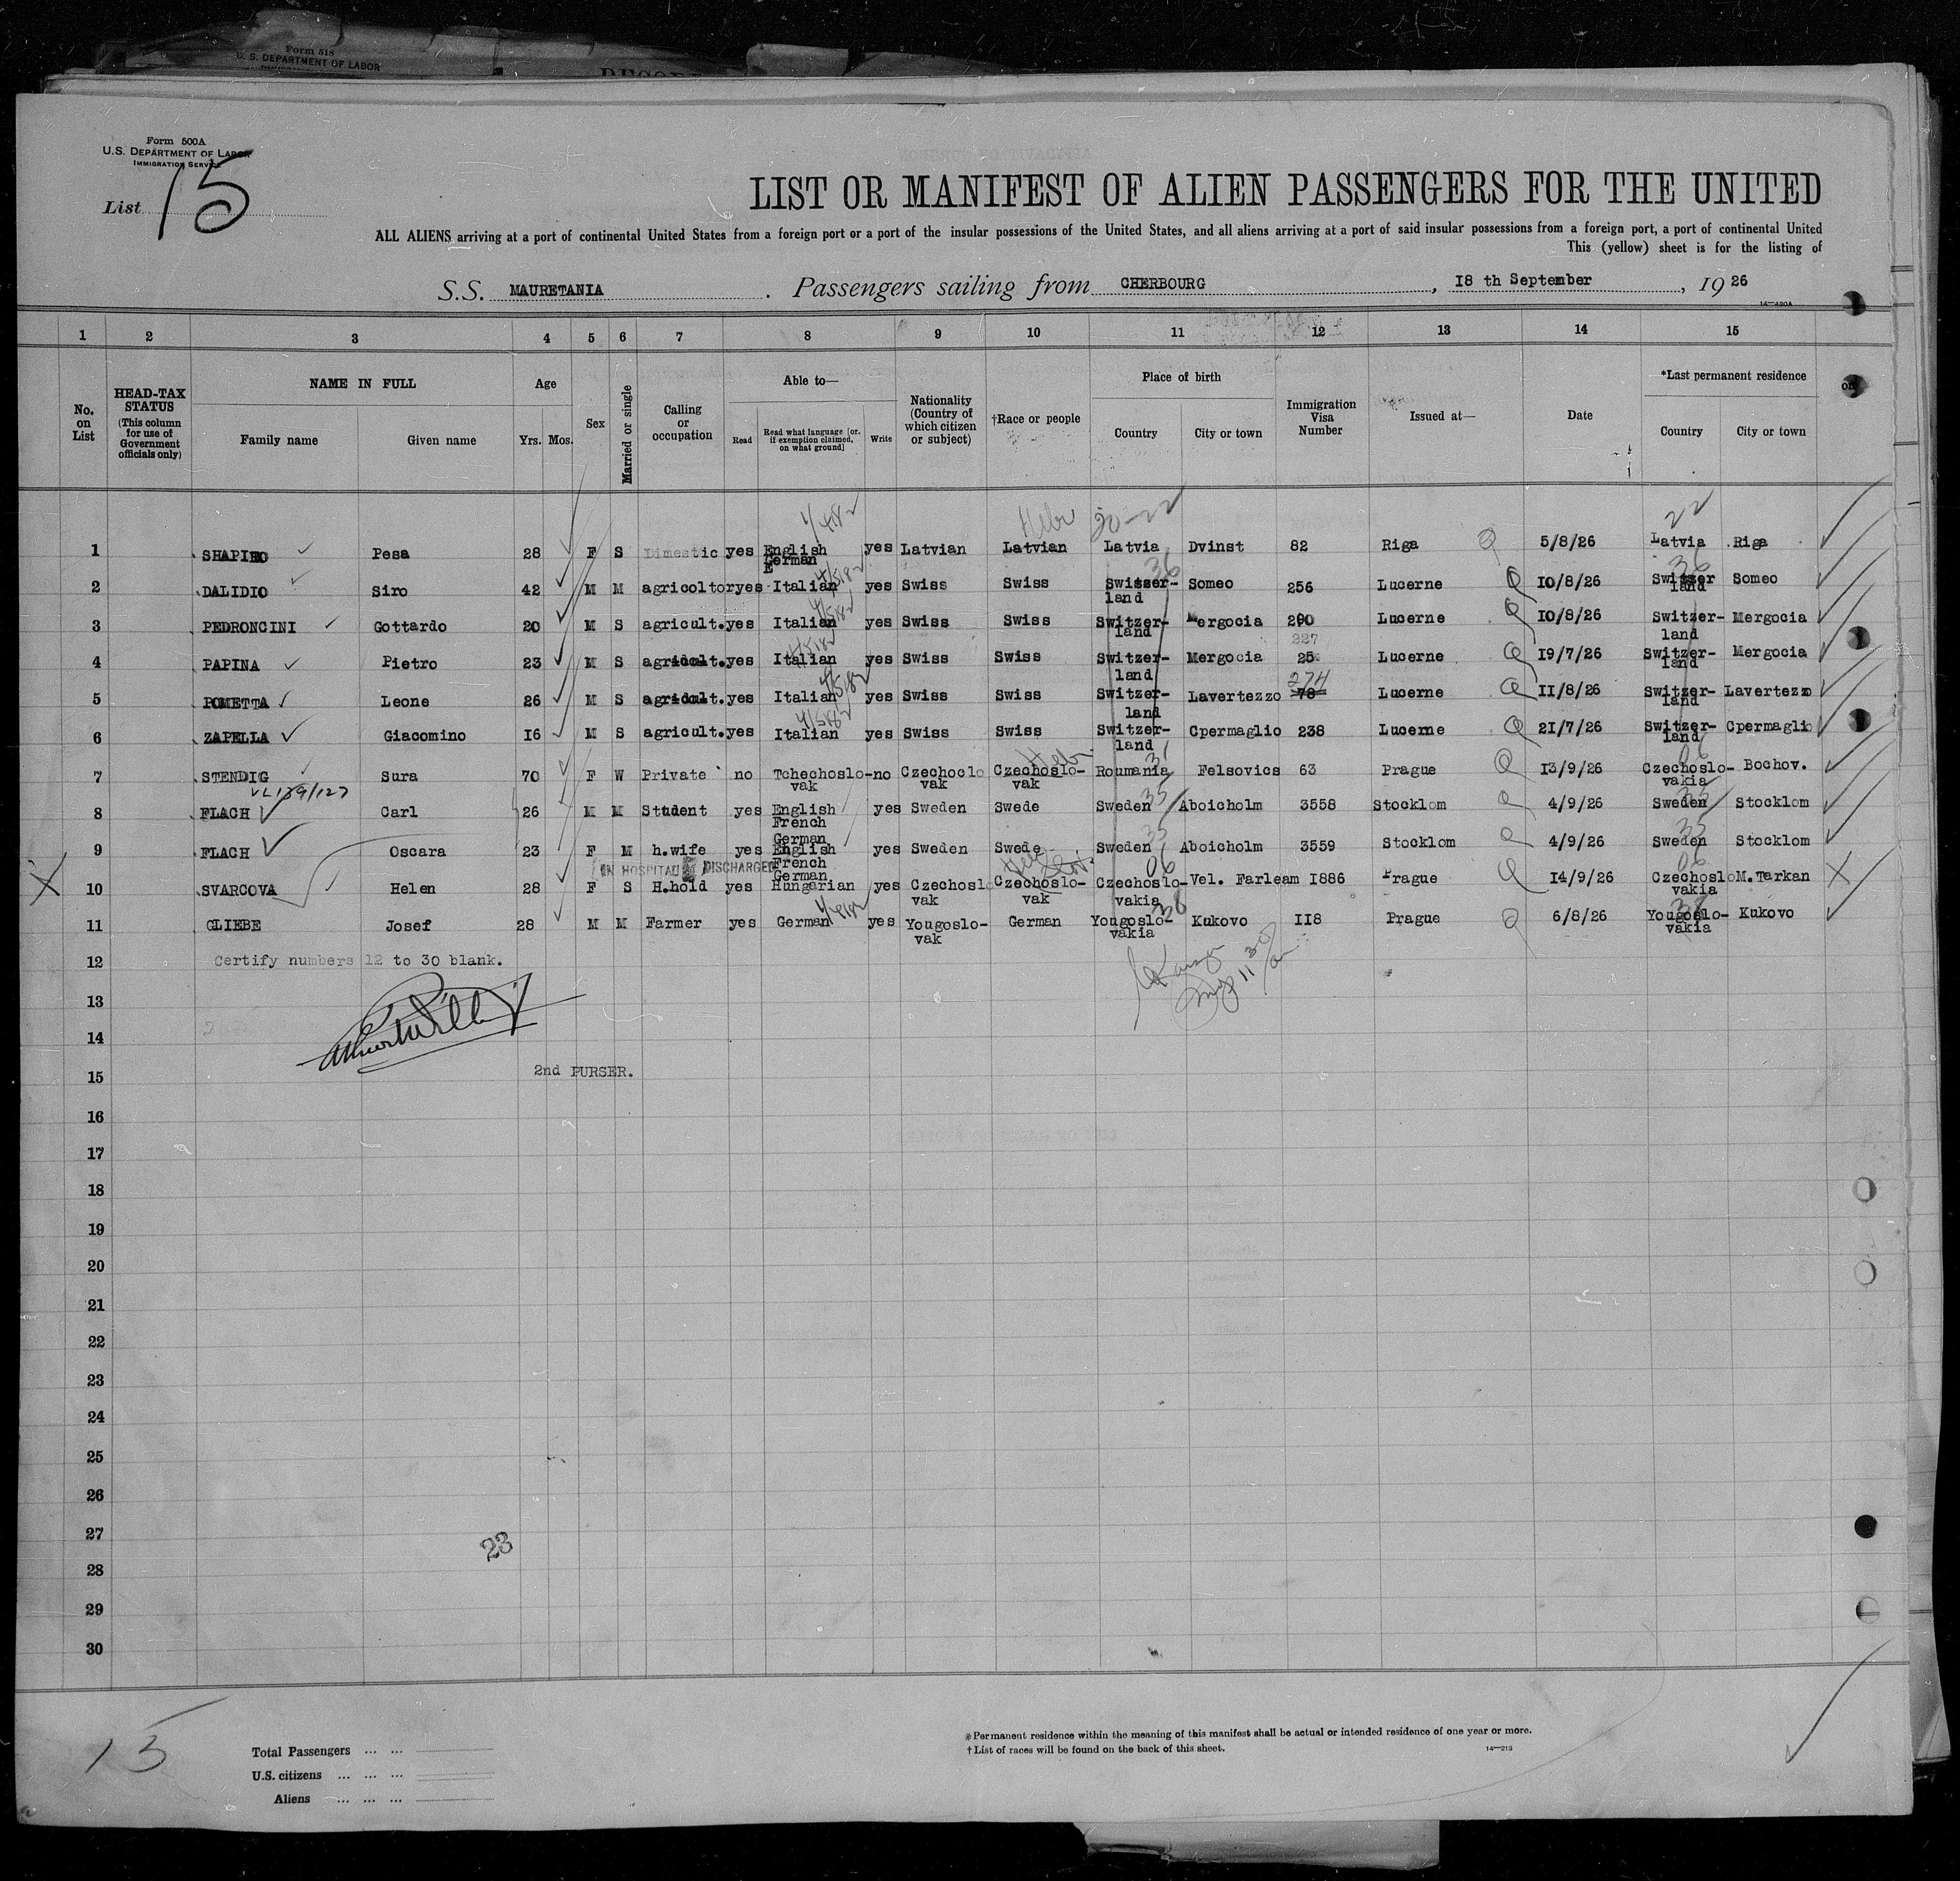 Form 518
U. S. DEPARTMENT OF LABOR
Form 500A
U.S. DEPARTMENT OF LABOR
IMMIGRATION SERVICE
List 15
LIST OR MANIFEST OF ALIEN PASSENGERS FOR THE UNITED
ALL ALIENS arriving at a port of continental United States from a foreign port or a port of the insular possessions of the United States, and all aliens arriving at a port of said insular possessions from a foreign port, a port of continental United
This (yellow) sheet is for the listing of
S.S. MAURETANIA . Passengers sailing from CHERBOURG , 18 th September , 19 26
14—430A
1 2 3 4 5 6 7 8 9 10 11 12 13 14 15
No. on List
HEAD-TAX STATUS (This column for use of Government officials only)
NAME IN FULL Family name Given name
Age Yrs. Mos.
Sex
Married or single
Calling or occupation
Able to— Read Read what language [or, if exemption claimed, on what ground] Write
Nationality (Country of which citizen or subject)
†Race or people
Place of birth Country City or town
Immigration Visa Number
Issued at—
Date
*Last permanent residence Country City or town
4/482 Hebr 20-22 22
1 SHAPIRO Pesa 28 F S Dimestic yes English German E yes Latvian Latvian Latvia Dvinst 82 Riga 5/8/26 Latvia Riga
4/5182 36 36
2 DALIDIO Siro 42 M M agricoltor yes Italian yes Swiss Swiss Switzer-land Someo 256 Lucerne 10/8/26 Switzer land Someo
4/5182
3 PEDRONCINI Gottardo 20 M S agricult. yes Italian yes Swiss Swiss Switzer-land Mergocia 290 Lucerne 10/8/26 Switzer-land Mergocia
4/5182 227
4 PAPINA Pietro 23 M S agricult. yes Italian yes Swiss Swiss Switzer-land Mergocia 25 Lucerne 19/7/26 Switzer-land Mergocia
4/5182 274
5 POMETTA Leone 26 M S agricult. yes Italian yes Swiss Swiss Switzer-land Lavertezzo 78 Lucerne 11/8/26 Switzer-land Lavertezzo
4/5182
6 ZAPELLA Giacomino 16 M S agricult. yes Italian yes Swiss Swiss Switzer-land Cpermaglio 238 Lucerne 21/7/26 Switzer-land Cpermaglio
Hebr 31 06
7 STENDIG Sura 70 F W Private no Tchechoslo-vak no Czechoclo vak Czechoslo-vak Roumania Felsovics 63 Prague 13/9/26 Czechoslo-vakia Bochov.
35 35
8 FLACH Carl 26 M M Student yes English French German yes Sweden Swede Sweden Aboicholm 3558 Stocklom 4/9/26 Sweden Stocklom
35 35
9 FLACH Oscara 23 F M h.wife yes English French German yes Sweden Swede Sweden Aboicholm 3559 Stocklom 4/9/26 Sweden Stocklom
IN HOSPITAL DISCHARGED Hebr 06 06
10 SVARCOVA Helen 28 F S H.hold yes Hungarian yes Czechoslo vak Czechoslo-vak Czechoslo-vakia Vel. Farleam 1886 Prague 14/9/26 Czechoslo vakia M.Tarkan
4/4182 38 38
11 GLIEBE Josef 28 M M Farmer yes German yes Yougoslo-vak German Yougoslo-vakia Kukovo 118 Prague 6/8/26 Yougoslo-vakia Kukovo
12 Certify numbers 12 to 30 blank.
13
14
15 2nd PURSER.
16
17
18
19
20
21
22
23
24
25
26
27
23
28
29
30
15
Total Passengers ... ...
U.S. citizens ... ... ...
Aliens ... ... ...
*Permanent residence within the meaning of this manifest shall be actual or intended residence of one year or more.
†List of races will be found on the back of this sheet.
14—213